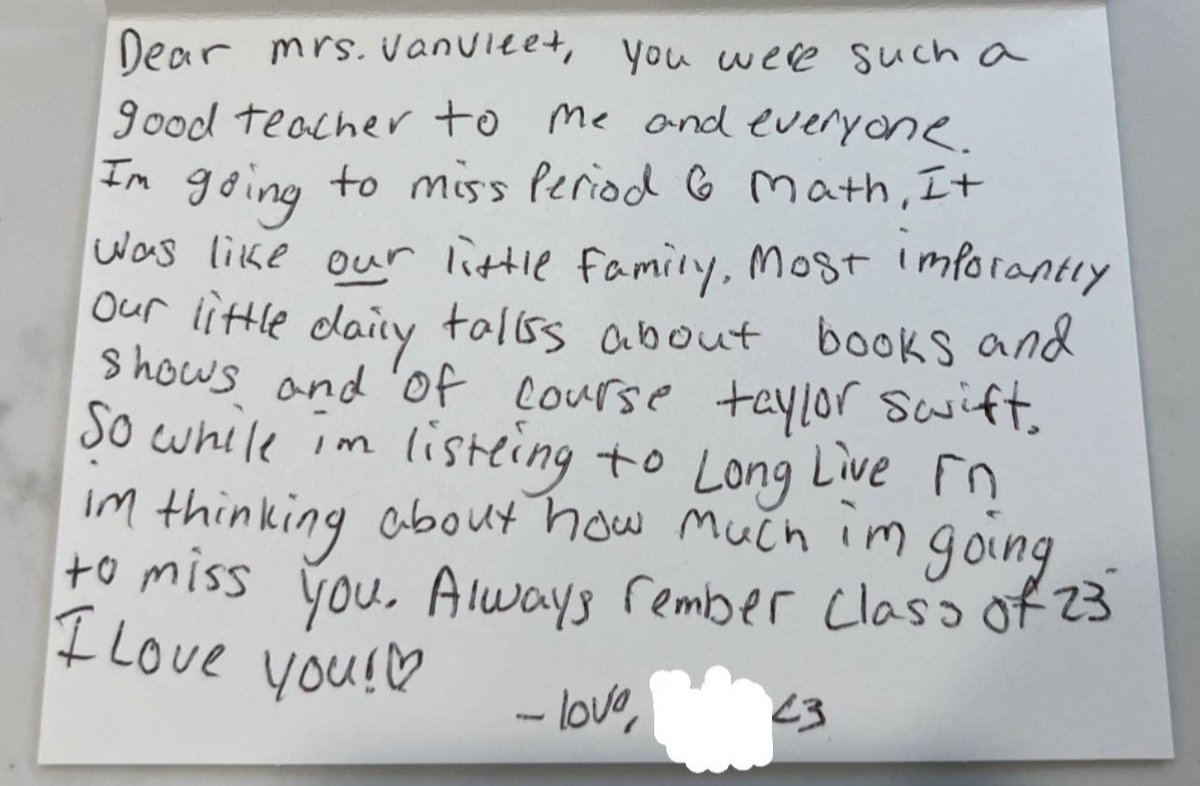 Dear mrs. vanvleet, you were such a
good teacher to me and everyone.
Im going to miss Period 6 math, It
was like our little family. Most imporantly
our little daily talks about books and
shows and of course taylor swift.
So while im listeing to Long Live rn
im thinking about how much im going
to miss you. Always rember class of 23
I Love you!♡
- love, <3